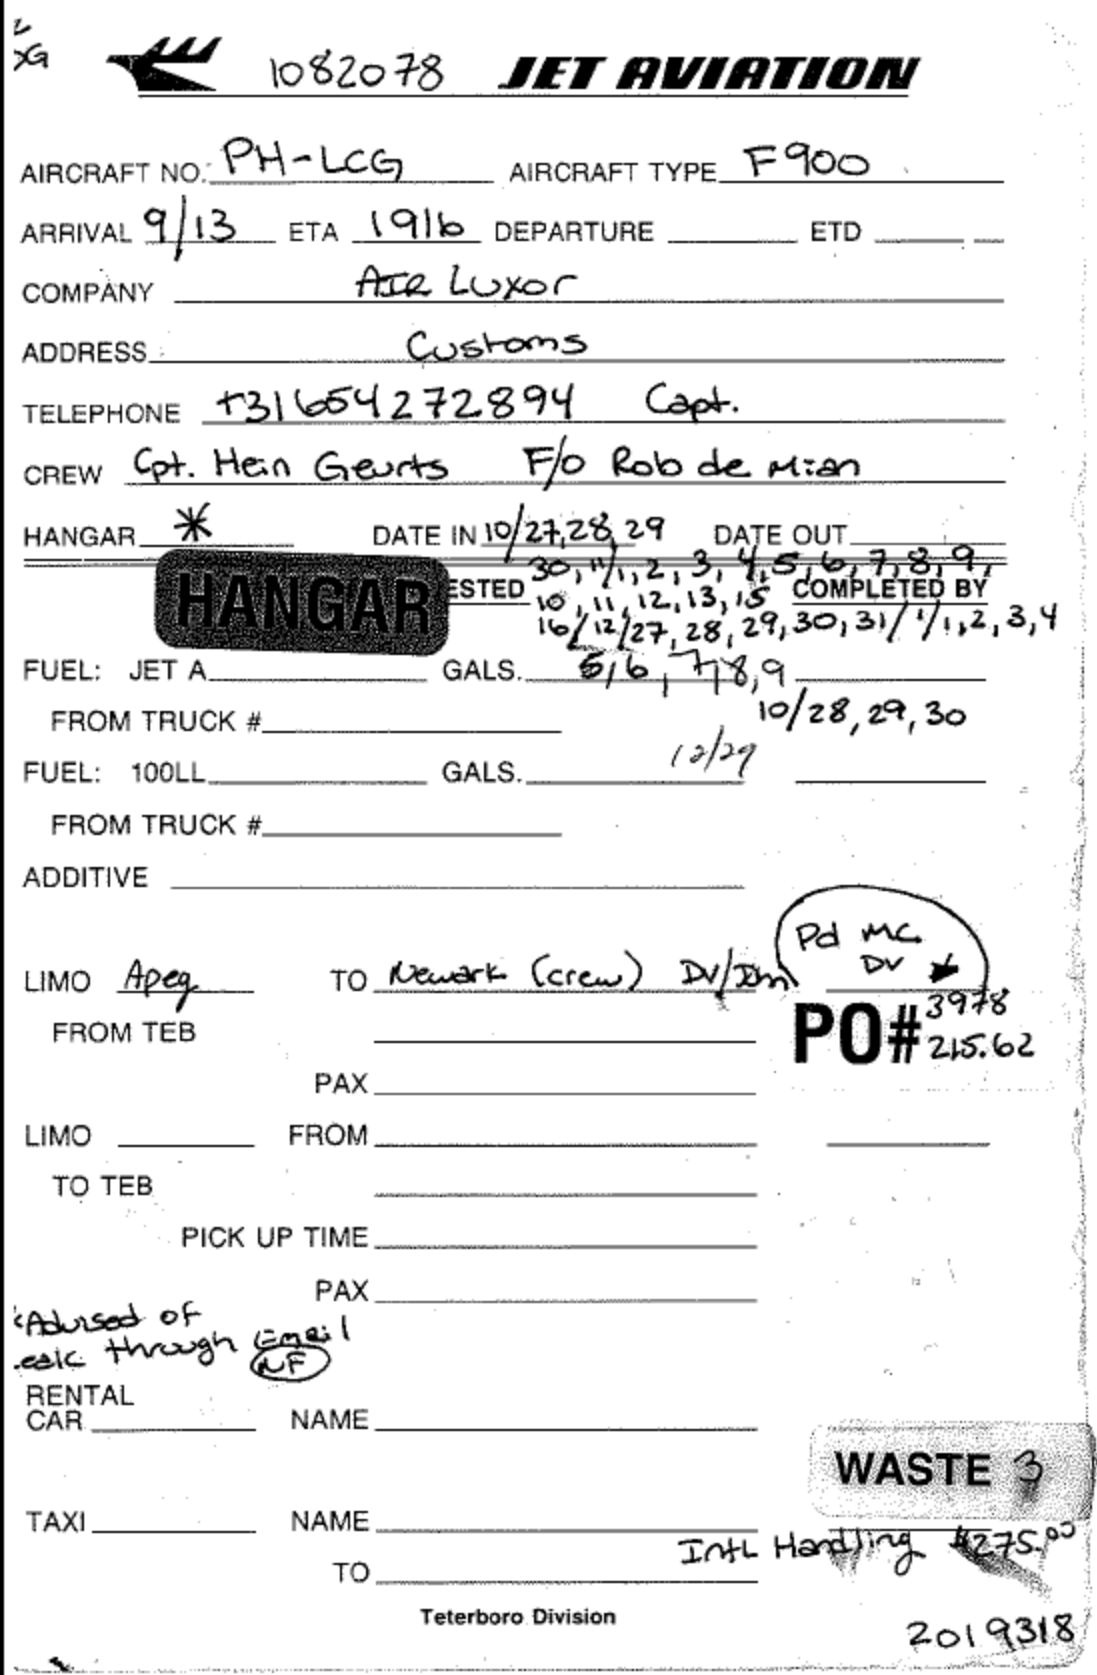 1082078 JET AVIATION
AIRCRAFT NO. PH-LCG AIRCRAFT TYPE F900
ARRIVAL 9/13 ETA 1916 DEPARTURE ETD
COMPANY AIR Luxor
ADDRESS Customs
TELEPHONE +31654272894 Capt.
CREW Cpt. Hein Geurts F/O Rob de Mian
HANGAR * DATE IN 10/27,28,29 DATE OUT
30, 11/1, 2, 3, 4, 5, 6, 7, 8, 9,
HANGAR ESTED COMPLETED BY
10, 11, 12, 13, 15
16/12/27, 28, 29, 30, 31/1/1, 2, 3, 4
FUEL: JET A GALS. 5, 6, 7, 8, 9
FROM TRUCK # 10/28, 29, 30
12/29
FUEL: 100LL GALS.
FROM TRUCK #
ADDITIVE
Pd MC
DV
LIMO Apeg TO Newark (crew) DV/
FROM TEB PO# 3978
215.62
PAX
LIMO FROM
TO TEB
PICK UP TIME
PAX
Advised of
through Email
NF
RENTAL
CAR NAME
WASTE 3
TAXI NAME
Intl Handling $275.00
TO
Teterboro Division
2019318